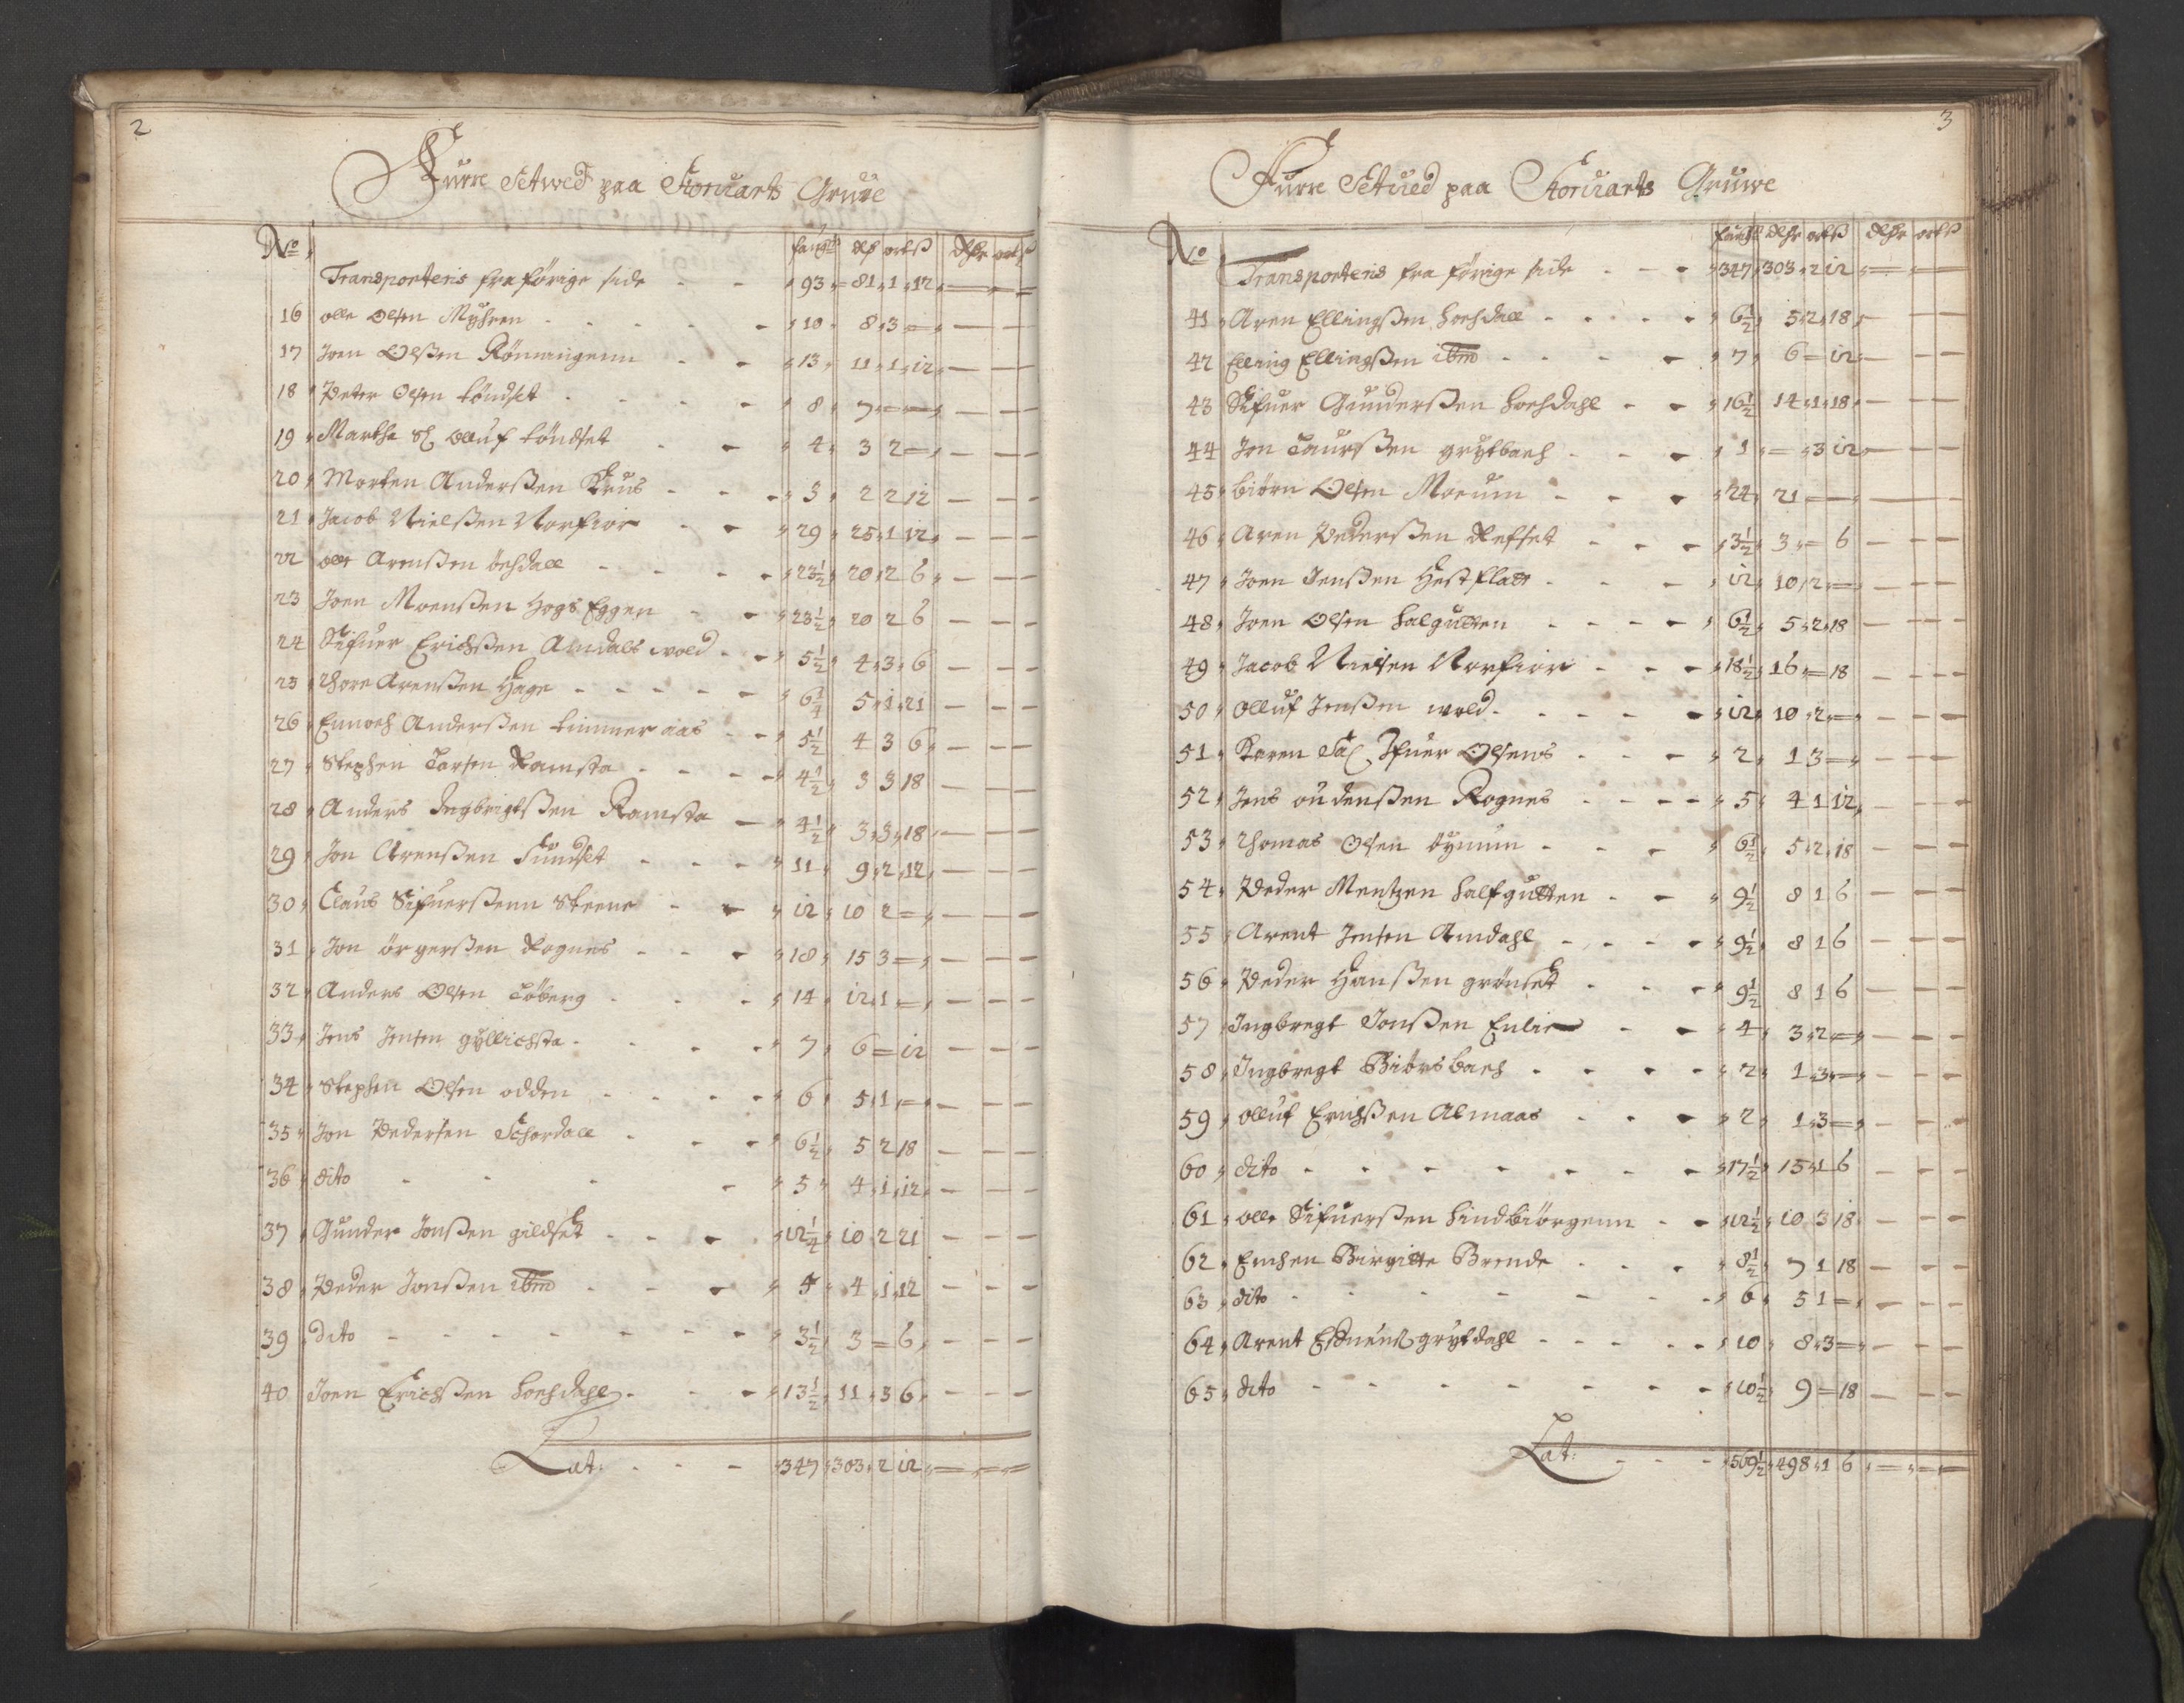 2
Furre Setwed paa Storuarts Gruve
No faugn Rdr ort ß Rdr ort ß
Transporteris fra förrige side 93 81 1 12
16 olle Olsen Myhren 10 8 3 =
17 Joen Olßen Rönningenn 13 11 1 12
18 Peter Olsen töndset 8 7 = =
19 Marthe Sl olluf töndset 4 3 2 =
20 Morten Anderßen Krus 3 2 2 12
21 Jacob Nielßen Norfior 29 25 1 12
22 olle Arenßen öchdall 23½ 20 2 6
23 Joen Moenßen Hogs Eggen 23½ 20 2 6
24 Sifuer Erichßen Amdals wold 5½ 4 3 6
25 Thore Arenßen Hage 6¼ 5 1 21
26 Ennoch Anderßen timmer aas 5½ 4 3 6
27 Stephen Tarsen Ramsta 4½ 3 3 18
28 Anders Ingbrigtßen Ramsta 4½ 3 3 18
29 Jon Arenßen Sundset 11 9 2 12
30 Claus Sifuerßenn Steene 12 10 2 =
31 Jon örgerßen Rognes 18 15 3 =
32 Anders Olsen Töberg 14 12 1 =
33 Jens Jensen gyllichsta 7 6 = 12
34 Stephen Olsen odden 6 5 1 =
35 Jon Pedersen Schordall 6½ 5 2 18
36 dito 5 4 1 12
37 Gunder Jonßen gildset 12¼ 10 2 21
38 Peder Jonßen ibm 5 4 1 12
39 dito 3½ 3 = 6
40 Joen Erichßen hoehdahl 13½ 11 3 6
Lat: 347 303 2 12
3
Furre Setued paa Storuarts Gruwe
No faugn Rdr ort ß Rdr ort ß
Transporteris fra förrige side 347 303 2 12
41 Aren Ellingßen hoehdall 6½ 5 2 18
42 Elling Ellingßen ibm 7 6 = 12
43 Sifuer Gunderßen hoehdahl 16½ 14 1 18
44 Jon Taurßen grytbach 1 = 3 12
45 biörn Olsen Moeum 24 21 =
46 Aren Pederßen Refset 3½ 3 = 6
47 Joen Jenßen Hestflatt 12 10 2 =
48 Joen Olsen halgutten 6½ 5 2 18
49 Jacob Nielsen Norfior 18½ 16 = 18
50 olluf Jenßen wold 12 10 2 =
51 Karen Sal Ifuer Olsens 2 1 3 =
52 Jens oudenßen Rognes 5 4 1 12
53 Thomas Olsen bynum 6½ 5 2 18
54 Peder Mentzen halfgutten 9½ 8 1 6
55 Arent Jensen Amdahl 9½ 8 1 6
56 Peder Hanßen grönset 9½ 8 1 6
57 Ingbregt Jonßen Enlie 4 3 2 =
58 Ingbregt Biörsbach 2 1 3 =
59 olluf Erichßen Almaas 2 1 3 =
60 dito 17½ 15 1 6
61 olle Sifuerßen hindbiörgenn 12½ 10 3 18
62 Enchen Birgitte Brende 8½ 7 1 18
63 dito 6 5 1 =
64 Arent grytdahl 10 8 3 =
65 dito 10½ 9 = 18
Lat: 569½ 498 1 6